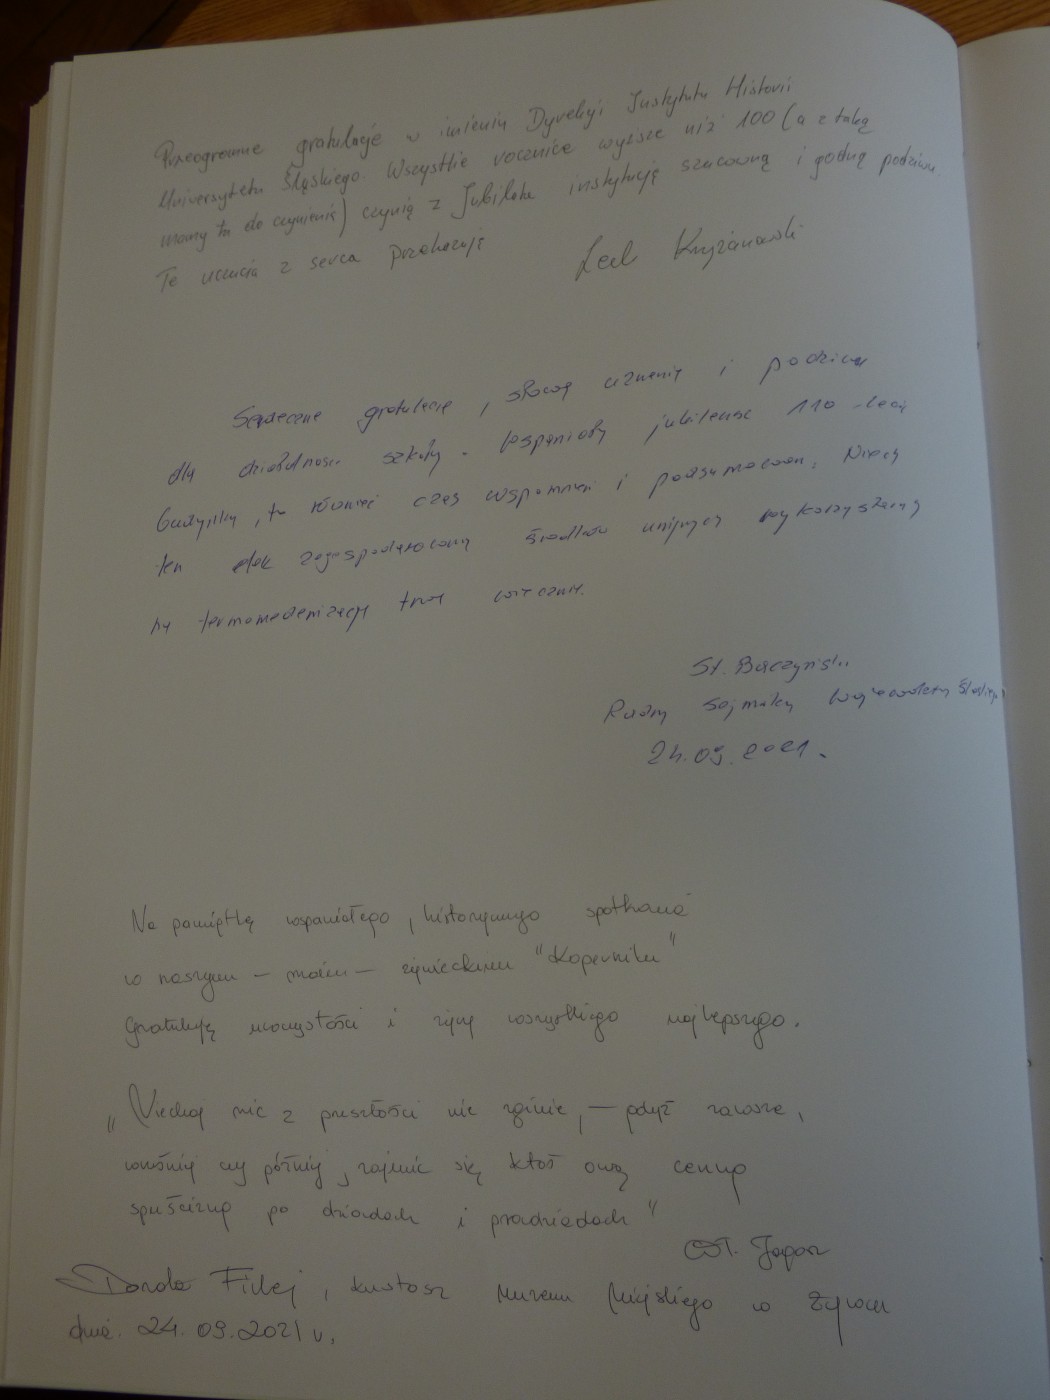 Przeogromne gratulacje w imieniu Dyrekcji Instytutu Historii
Uniwersytetu Śląskiego. Wszystkie rocznice wyższe niż 100 (a z taką
mamy tu do czynienia) czynią z Jubilata instytucję szacowną i godną podziwu.
Te uczucia z serca przekazuję
Lech Krzyżanowski
Serdeczne gratulacje, słowa uznania i podziwu
dla działalności szkoły. Wspaniały jubileusz 110-lecia
budynku, to również czas wspomnień i podsumowań. Niech
ten efek zagospodarowania środków unijnych wykorzystany
na termomodernizację trwa wiecznie.
St. Baczyński
Radny Sejmiku Województwa Śląskiego
24.09.2021.
Na pamiątkę wspaniałego, historycznego spotkania
w naszym – moim – żywieckim "Koperniku"
Gratuluję uroczystości i życzę wszystkiego najlepszego.
„Niechaj nic z przeszłości nie zginie, – gdyż zawsze,
wcześniej czy później, zajmie się ktoś ową cenną
spuścizną po dziadach i pradziadach"
Dorota Firlej, kustosz Muzeum Miejskiego w Żywcu
dnia. 24.09.2021 r.